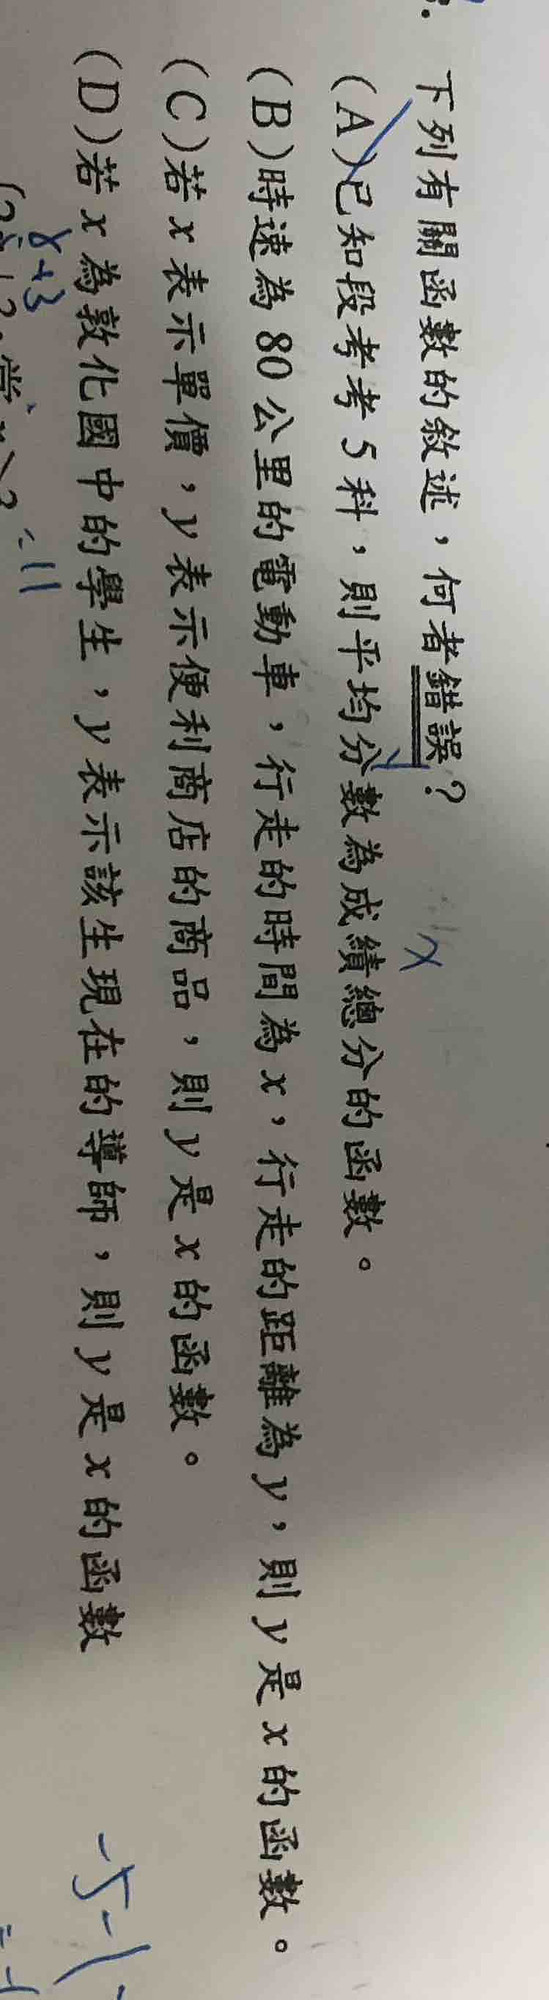 下列有關函數的敘述，何者錯誤？
x
y
(A)已知段考考5科，則平均分數為成績總分的函數。
(B)時速為80公里的電動車，行走的時間為x，行走的距離為y，則y是x的函數。
(C)若x表示單價，y表示便利商店的商品，則y是x的函數。
(D)若x為敦化國中的學生，y表示該生現在的導師，則y是x的函數
8+3
=11
-5-1